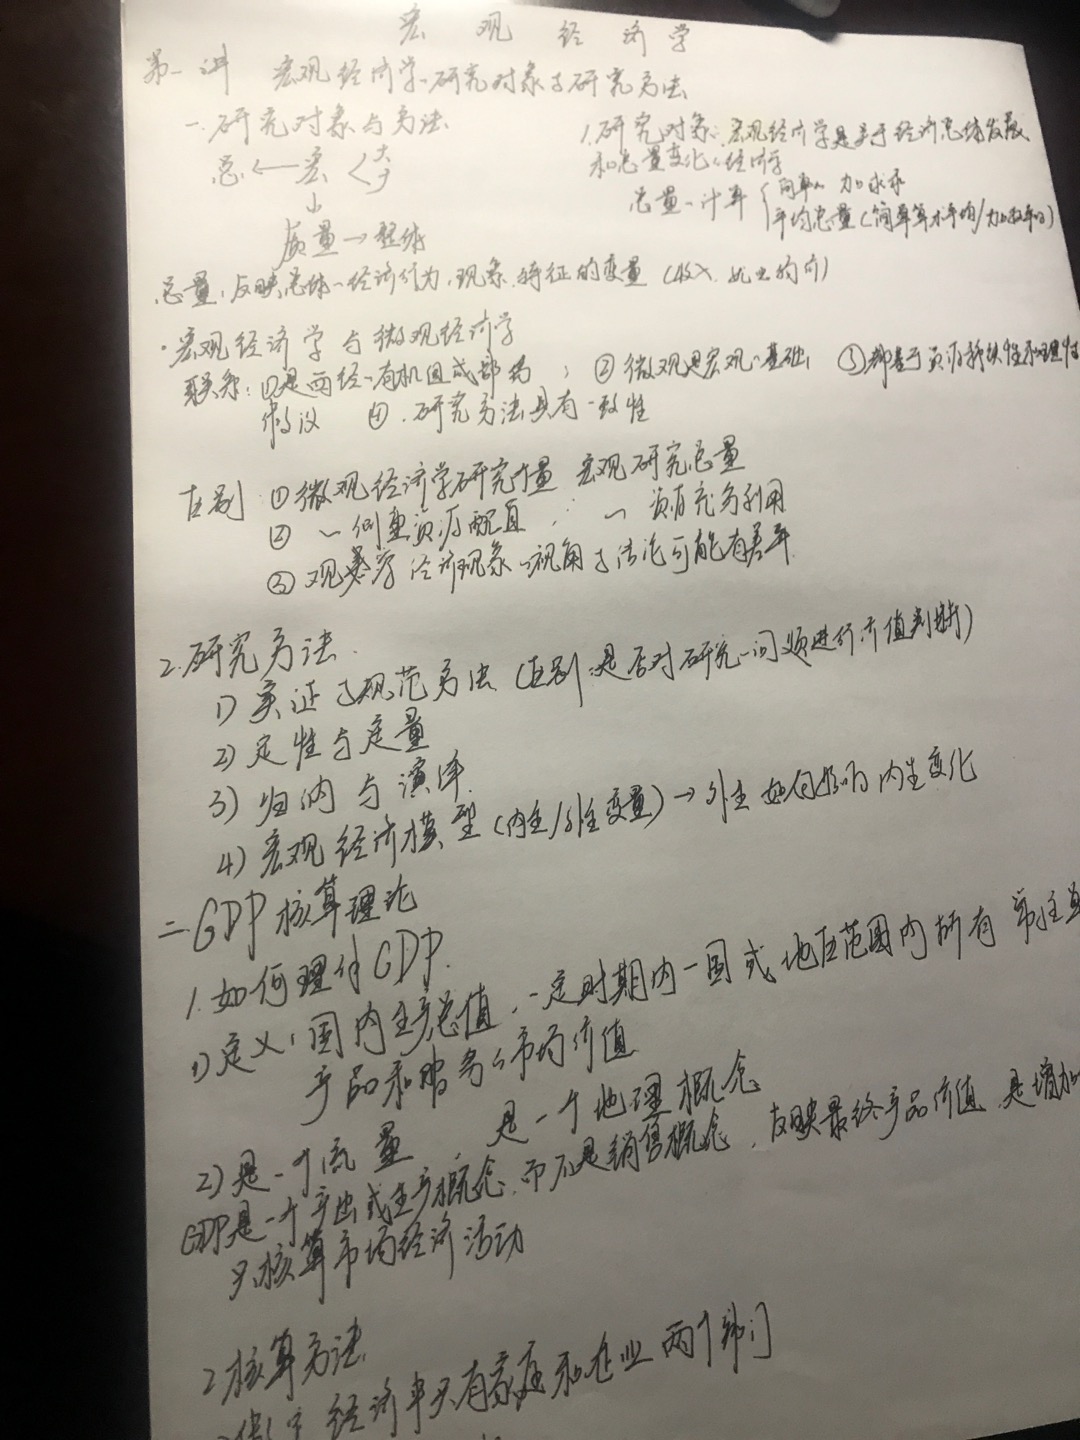 宏观经济学
第一讲 宏观经济学、研究对象与研究方法
一.研究对象与方法
总 ← 宏 〈大
1.研究对象:宏观经济学是关于经济总体发展
和总量变化、经济学
总量、计算 { 简单、加或求和
平均总量(简单算术平均/加权平均)
↓
质量→整体
总量:反映总体、经济行为、现象、特征的变量(收入、
·宏观经济学与微观经济学
联系:①是西经、有机组成部分;②微观是宏观、基础 ③都基于资源稀缺性和理性
假设 ④.研究方法具有一致性
区别:①微观经济学研究个量 宏观研究总量
② ~ 侧重资源配置, ~ 资源充分利用
③观察等经济现象、视角与结论可能有差异
2.研究方法
1)实证与规范方法(区别:是否对研究、问题进行价值判断)
2)定性与定量
3)归纳与演绎
4)宏观经济模型(内生/外生变量)→外生如何影响内生变化
二.GDP核算理论
1.如何理解GDP.
1)定义:国内生产总值,一定时期内一国或地区范围内所有常住单
产品和服务、市场价值
2)是一个流量,是一个地理概念
GDP是一个产出或生产概念,而不是销售概念,反映最终产品价值,是增加
只核算市场经济活动
2.核算方法
假定经济中只有家庭和企业两个部门